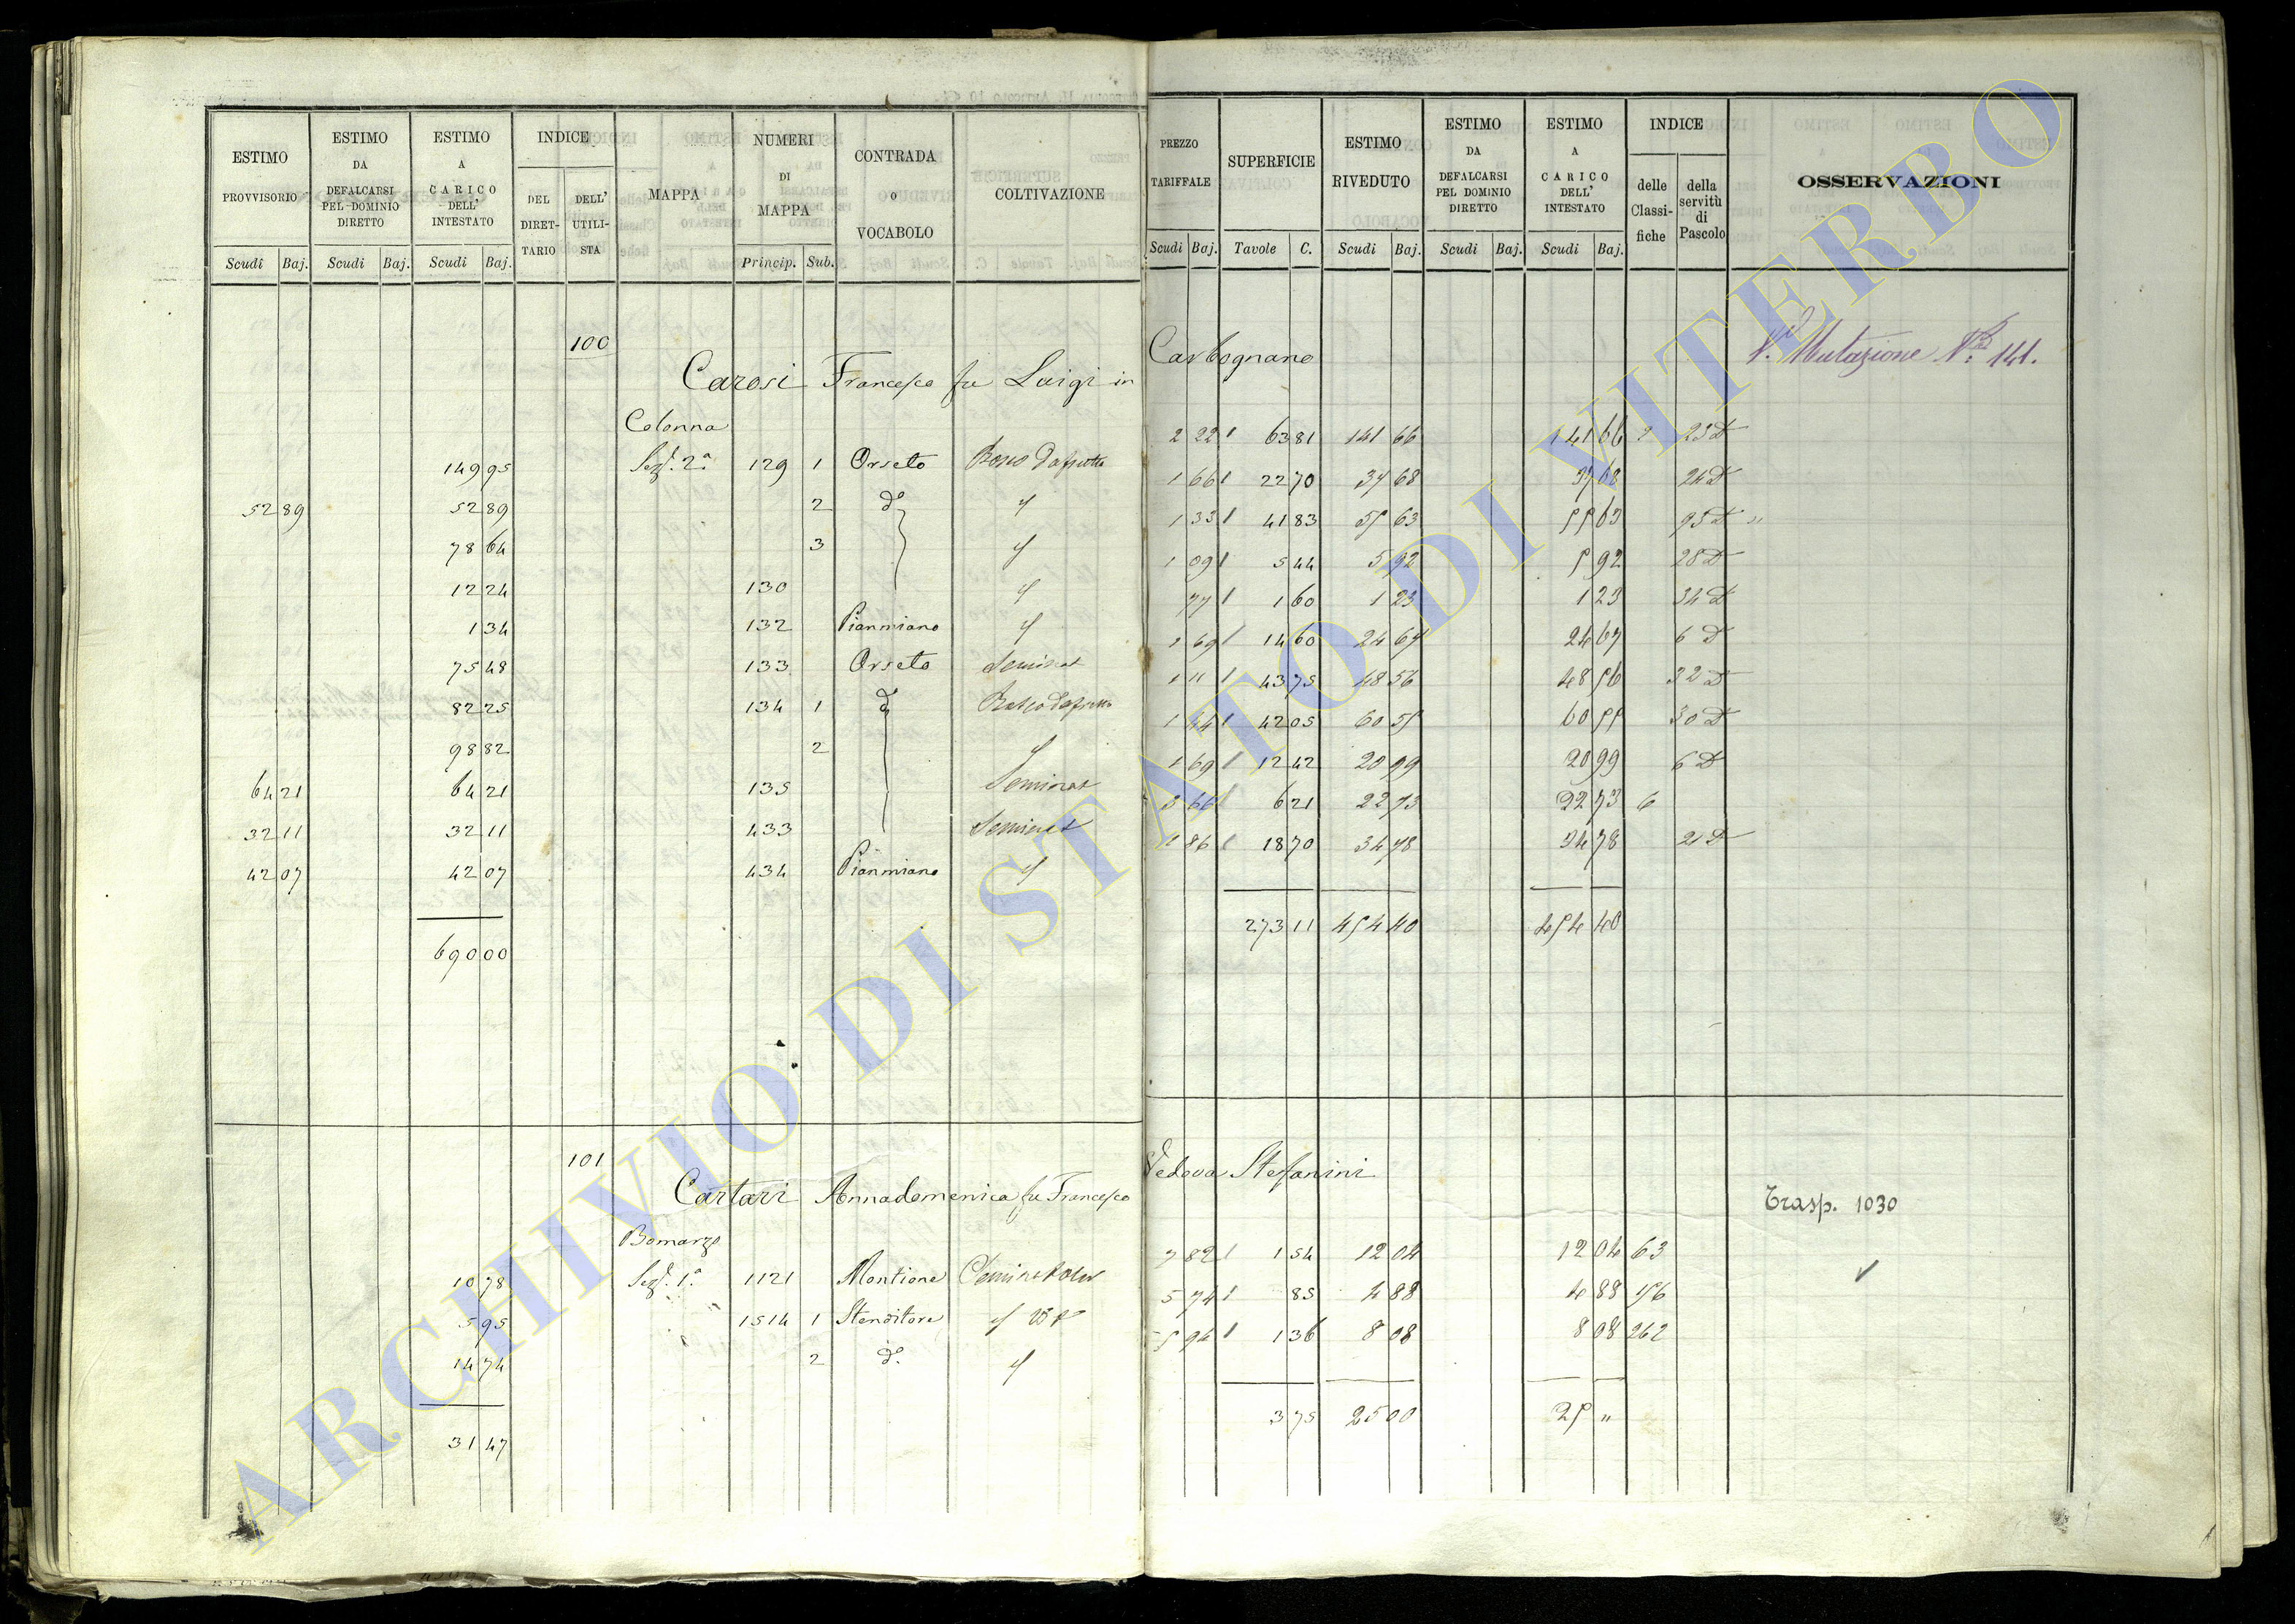 ESTIMO PROVVISORIO | ESTIMO DA DEFALCARSI PEL DOMINIO DIRETTO | ESTIMO A CARICO DELL' INTESTATO | INDICE DEL DIRETTARIO | DELL' UTILISTA | MAPPA | NUMERI DI MAPPA | CONTRADA o VOCABOLO | COLTIVAZIONE | PREZZO TARIFFALE | SUPERFICIE | ESTIMO RIVEDUTO | ESTIMO DA DEFALCARSI PEL DOMINIO DIRETTO | ESTIMO A CARICO DELL' INTESTATO | INDICE delle Classifiche | della servitù di Pascolo | OSSERVAZIONI
Scudi Baj. | Scudi Baj. | Scudi Baj. | Princip. Sub. | Scudi Baj. | Tavole C. | Scudi Baj. | Scudi Baj. | Scudi Baj.
100
Carosi Francesco fu Luigi in Carbognano
V. Mutazione N. 141.
Colonna
149 95 Sez. 2a 129 1 Orseto 2 22 63 81 141 66 141 66 23 D
52 89 52 89 2 do 1 66 22 70 37 68 37 68 24 D
78 64 3 1 33 41 83 55 63 55 63 25 D
12 24 130 1 09 5 44 5 92 5 92 28 D
1 34 132 Pianmiano 77 1 60 1 23 1 23 34 D
75 48 133 Orseto Seminat 1 69 14 60 24 67 24 67 6 D
82 25 134 1 do 1 11 43 75 48 56 48 56 32 D
98 82 2 1 44 42 05 60 55 60 55 30 D
64 21 64 21 135 Seminat 1 69 12 42 20 99 20 99 6 D
32 11 32 11 433 Seminat 3 66 6 21 22 73 22 73 6
42 07 42 07 434 Pianmiano 1 86 18 70 34 78 34 78 2 D
690 00 273 11 454 40 454 40
101
Cartari Annadomenica fu Francesco Vedova Stefanini
Trasp. 1030
Bomarzo
10 78 Sez. 1a 1121 Montione 7 82 1 54 12 04 12 04 63
5 95 1514 1 Stenditore 5 74 85 4 88 4 88 56
14 74 2 do 5 94 1 36 8 08 8 08 262
31 47 3 75 25 00 25 "
ARCHIVIO DI STATO DI VITERBO